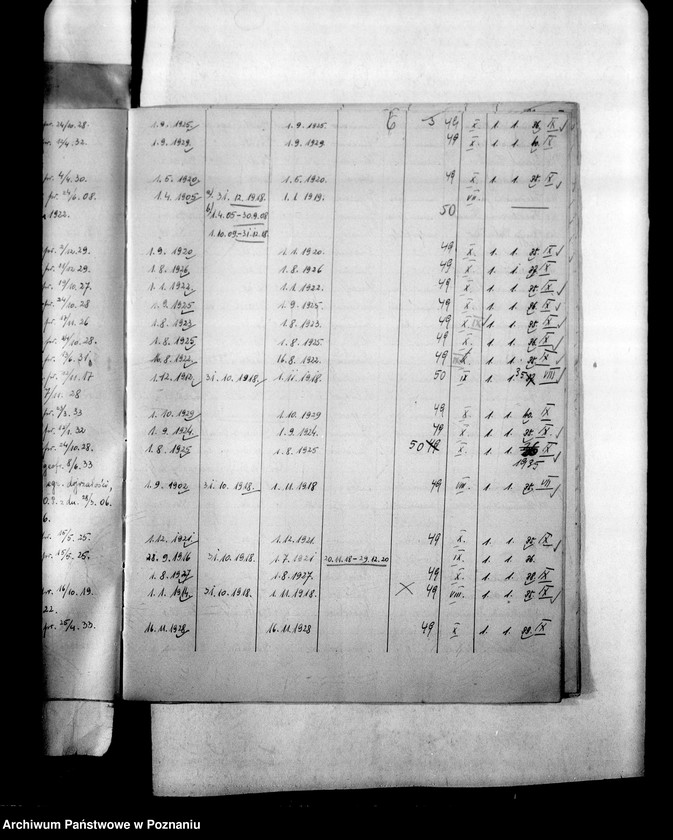 pr. 24/10.28. 1.9.1925 1.9.1925. 6 5 49 X. 1. 1. IX
4.32. 1.9.1929 1.9.1929 49 X. 1. 1. IX
pr. 4/4.30. 1.6.1920 1.6.1920. 49 X. 1. 1. 35. IX
6.08. 1.4.1905 a/ 31.12.1918. 1.1.1919. VII.
1922. b/ 1.4.05-30.9.08 50 —
1.10.09-31.12.18.
12.29. 1.9.1920 1.11.1920. 49 X. 1. 1. 35. IX
29. 1.8.1926 1.8.1926 49 X. 1. 1. IX
pr. 19/10.27. 1.11.1922 1.11.1922. 49 X. 1. 1. 35. IX
pr. 24/10.28 1.9.1925 1.9.1925. 49 X. 1. 1. IX
11.26 1.8.1923 1.8.1923. 49 X. 1. 1. 35. IX
10.28. 1.8.1925 1.8.1925. 49 X. 1. 1. IX
6.31 16.8.1922 16.8.1922. 49 X. 1. 1. 35. IX
11.17 1.12.1912 31.10.1918. 1.11.1918. 50 IX 1. 1. 35 VIII
7/11.28
3.33 1.10.1929 1.10.1929 49 X. 1. 1. IX
1.32 1.9.1924. 1.9.1924. 49 X. 1. 1. 35. IX
pr. 24/10.28. 1.8.1925 1.8.1925 50 49 X. 1. 1. IX
8/6.33 1935
dojrzałości, 1.9.1902 31.10.1918. 1.11.1918 49 VIII. 1. 1. 35. VII
3.06.
6.
pr. 15/5.25. 1.12.1921 1.12.1921. 49 X. 1. 1. 35. IX
pr. 15/5.25. 28.9.1916 31.10.1918. 1.7.1921 20.11.18-29.12.20 IX. 1. 1.
1.8.1927 1.8.1927. 49 X. 1. 1. IX
pr. 16/10.19. 1.1.1914 31.10.1918. 1.11.1918. X 49 VIII. 1. 1. 35. IX
22.
pr. 25/4.33. 16.11.1928 16.11.1928 49 X 1. 1. IX
Archiwum Państwowe w Poznaniu